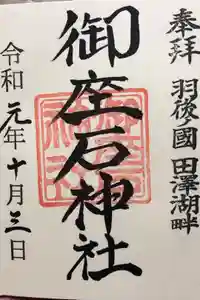 奉拝 羽後國 田澤湖畔
御座石神社
令和元年十月三日